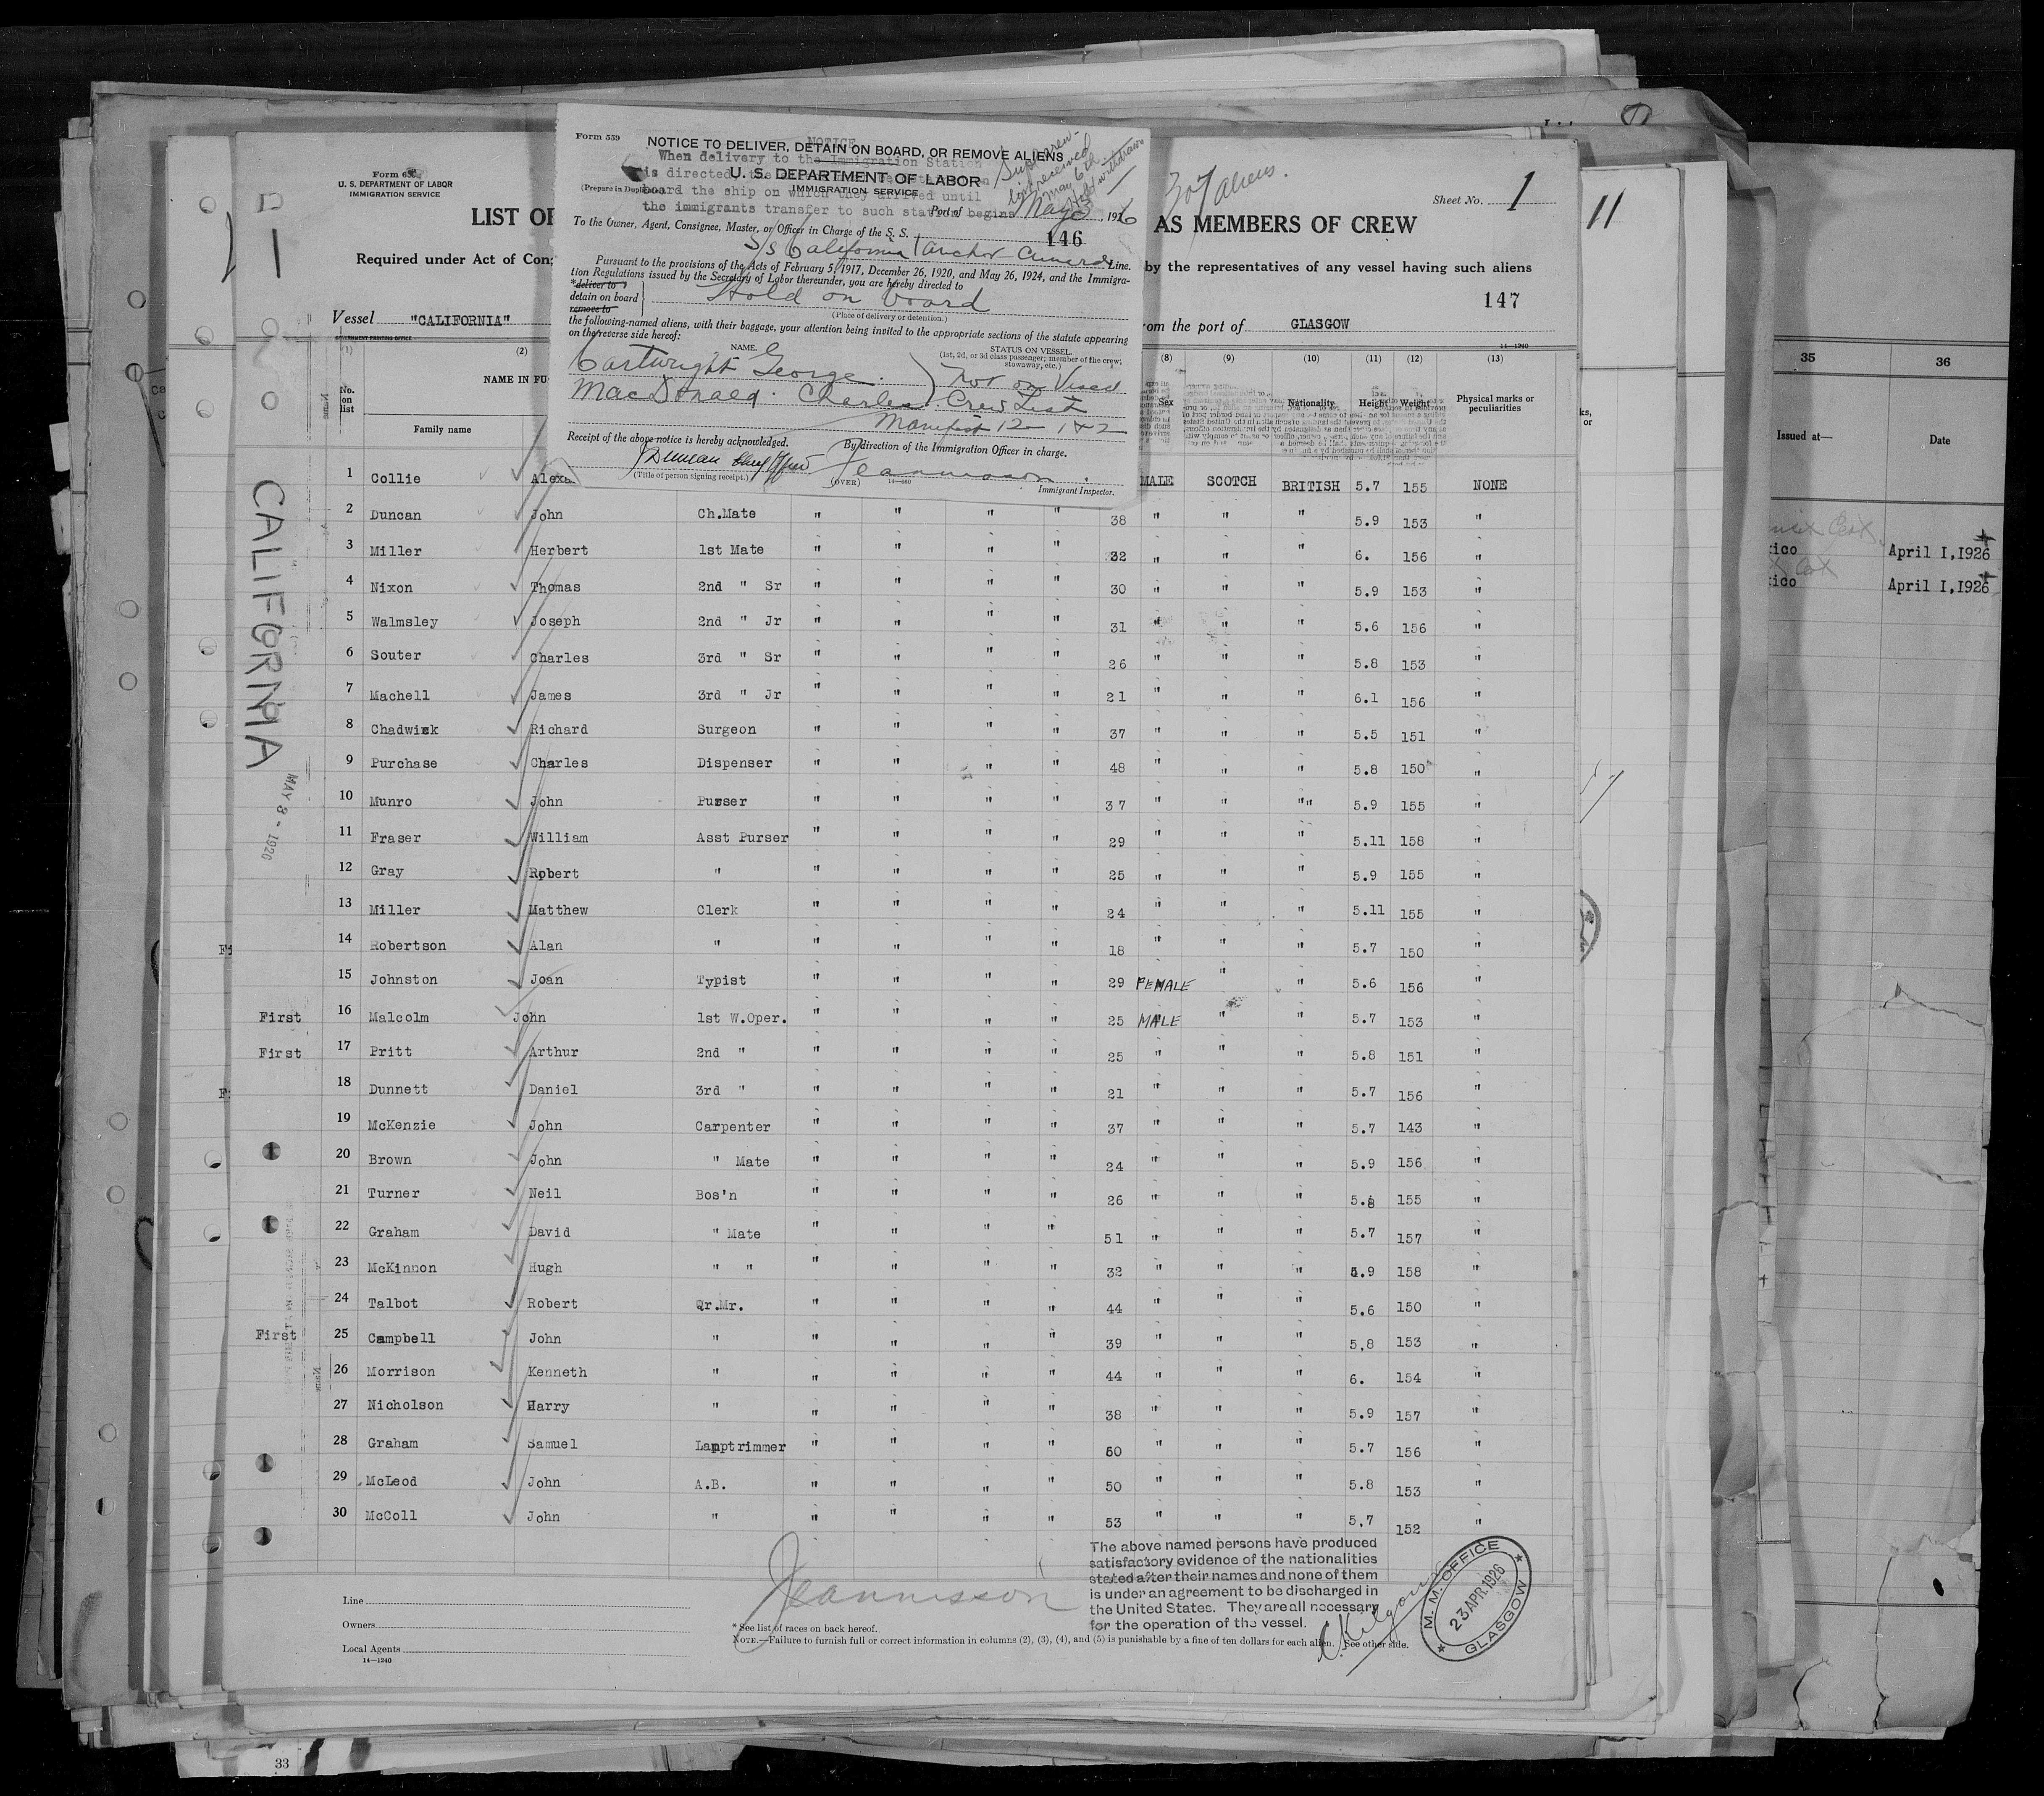 Form 559
NOTICE TO DELIVER, DETAIN ON BOARD, OR REMOVE ALIENS
NOTICE
When delivery to the Immigration Station
U. S. DEPARTMENT OF LABOR
is directed, the
(Prepare in Duplicate)
IMMIGRATION SERVICE
board the ship on which they arrived until
the immigrants transfer to such station begins
Port of May 6, 1926
received
May 6th
withdrawn
To the Owner, Agent, Consignee, Master, or Officer in Charge of the S. S.
146
S/S California Anchor Cunard Line.
Pursuant to the provisions of the Acts of February 5, 1917, December 26, 1920, and May 26, 1924, and the Immigra-
tion Regulations issued by the Secretary of Labor thereunder, you are hereby directed to
*deliver to
detain on board
remove to
Hold on board
(Place of delivery or detention.)
the following-named aliens, with their baggage, your attention being invited to the appropriate sections of the statute appearing
on the reverse side hereof:
NAME.
STATUS ON VESSEL.
(1st, 2d, or 3d class passenger; member of the crew; stowaway, etc.)
Cartwright George. Not on Visaed
MacDonald. Charles. Crew List
Manifest 12 1 & 2
Receipt of the above notice is hereby acknowledged.
By direction of the Immigration Officer in charge.
J Duncan Chief Officer
Jeannisson
(Title of person signing receipt.)
(OVER)
14—660
Immigrant Inspector.
Form 6
U. S. DEPARTMENT OF LABOR
IMMIGRATION SERVICE
307 aliens.
Sheet No. 1
11
LIST OF
AS MEMBERS OF CREW
Required under Act of Con
by the representatives of any vessel having such aliens
147
Vessel "CALIFORNIA"
om the port of GLASGOW
GOVERNMENT PRINTING OFFICE
14—1240
(1) (2) (8) (9) (10) (11) (12) (13)
No. on list
NAME IN FU
Family name
Sex
Nationality
Height
Weight
Physical marks or peculiarities
1 Collie Alexa MALE SCOTCH BRITISH 5.7 155 NONE
2 Duncan John Ch.Mate " " " " 38 " " " 5.9 153 "
3 Miller Herbert 1st Mate " " " " 32 " " " 6. 156 "
4 Nixon Thomas 2nd " Sr " " " " 30 " " " 5.9 153 "
5 Walmsley Joseph 2nd " Jr " " " " 31 " " " 5.6 156 "
6 Souter Charles 3rd " Sr " " " " 26 " " " 5.8 153 "
7 Machell James 3rd " Jr " " " " 21 " " " 6.1 156 "
8 Chadwick Richard Surgeon " " " " 37 " " " 5.5 151 "
9 Purchase Charles Dispenser " " " " 48 " " " 5.8 150 "
10 Munro John Purser " " " " 37 " " "" 5.9 155 "
11 Fraser William Asst Purser " " " " 29 " " " 5.11 158 "
12 Gray Robert " " " " " 25 " " " 5.9 155 "
13 Miller Matthew Clerk " " " " 24 " " " 5.11 155 "
14 Robertson Alan " " " " " 18 " " " 5.7 150 "
15 Johnston Joan Typist " " " " 29 FEMALE " " 5.6 156 "
First 16 Malcolm John 1st W.Oper. " " " " 25 MALE " " 5.7 153 "
First 17 Pritt Arthur 2nd " " " " " 25 " " " 5.8 151 "
18 Dunnett Daniel 3rd " " " " " 21 " " " 5.7 156 "
19 McKenzie John Carpenter " " " " 37 " " " 5.7 143 "
20 Brown John " Mate " " " " 24 " " " 5.9 156 "
21 Turner Neil Bos'n " " " " 26 " " " 5.8 155 "
22 Graham David " Mate " " " " 51 " " " 5.7 157 "
23 McKinnon Hugh " " " " " " 32 " " " 5.9 158 "
24 Talbot Robert Qr.Mr. " " " " 44 " " " 5.6 150 "
First 25 Campbell John " " " " " 39 " " " 5,8 153 "
26 Morrison Kenneth " " " " " 44 " " " 6. 154 "
27 Nicholson Harry " " " " " 38 " " " 5.9 157 "
28 Graham Samuel Lamptrimmer " " " " 50 " " " 5.7 156 "
29 McLeod John A.B. " " " " 50 " " " 5.8 153 "
30 McColl John " " " " " 53 " " " 5,7 152 "
CALIFORNIA
MAY 8 - 1926
Jeannisson
The above named persons have produced
satisfactory evidence of the nationalities
stated after their names and none of them
is under an agreement to be discharged in
the United States. They are all necessary
for the operation of the vessel.
C. Kilgour
M. M. OFFICE
23 APR 1926
GLASGOW
Line
Owners
Local Agents
14—1240
* See list of races on back hereof.
NOTE.—Failure to furnish full or correct information in columns (2), (3), (4), and (5) is punishable by a fine of ten dollars for each alien. See other side.
35 36
Issued at— Date
ico April 1,1926
ico April 1,1926
33